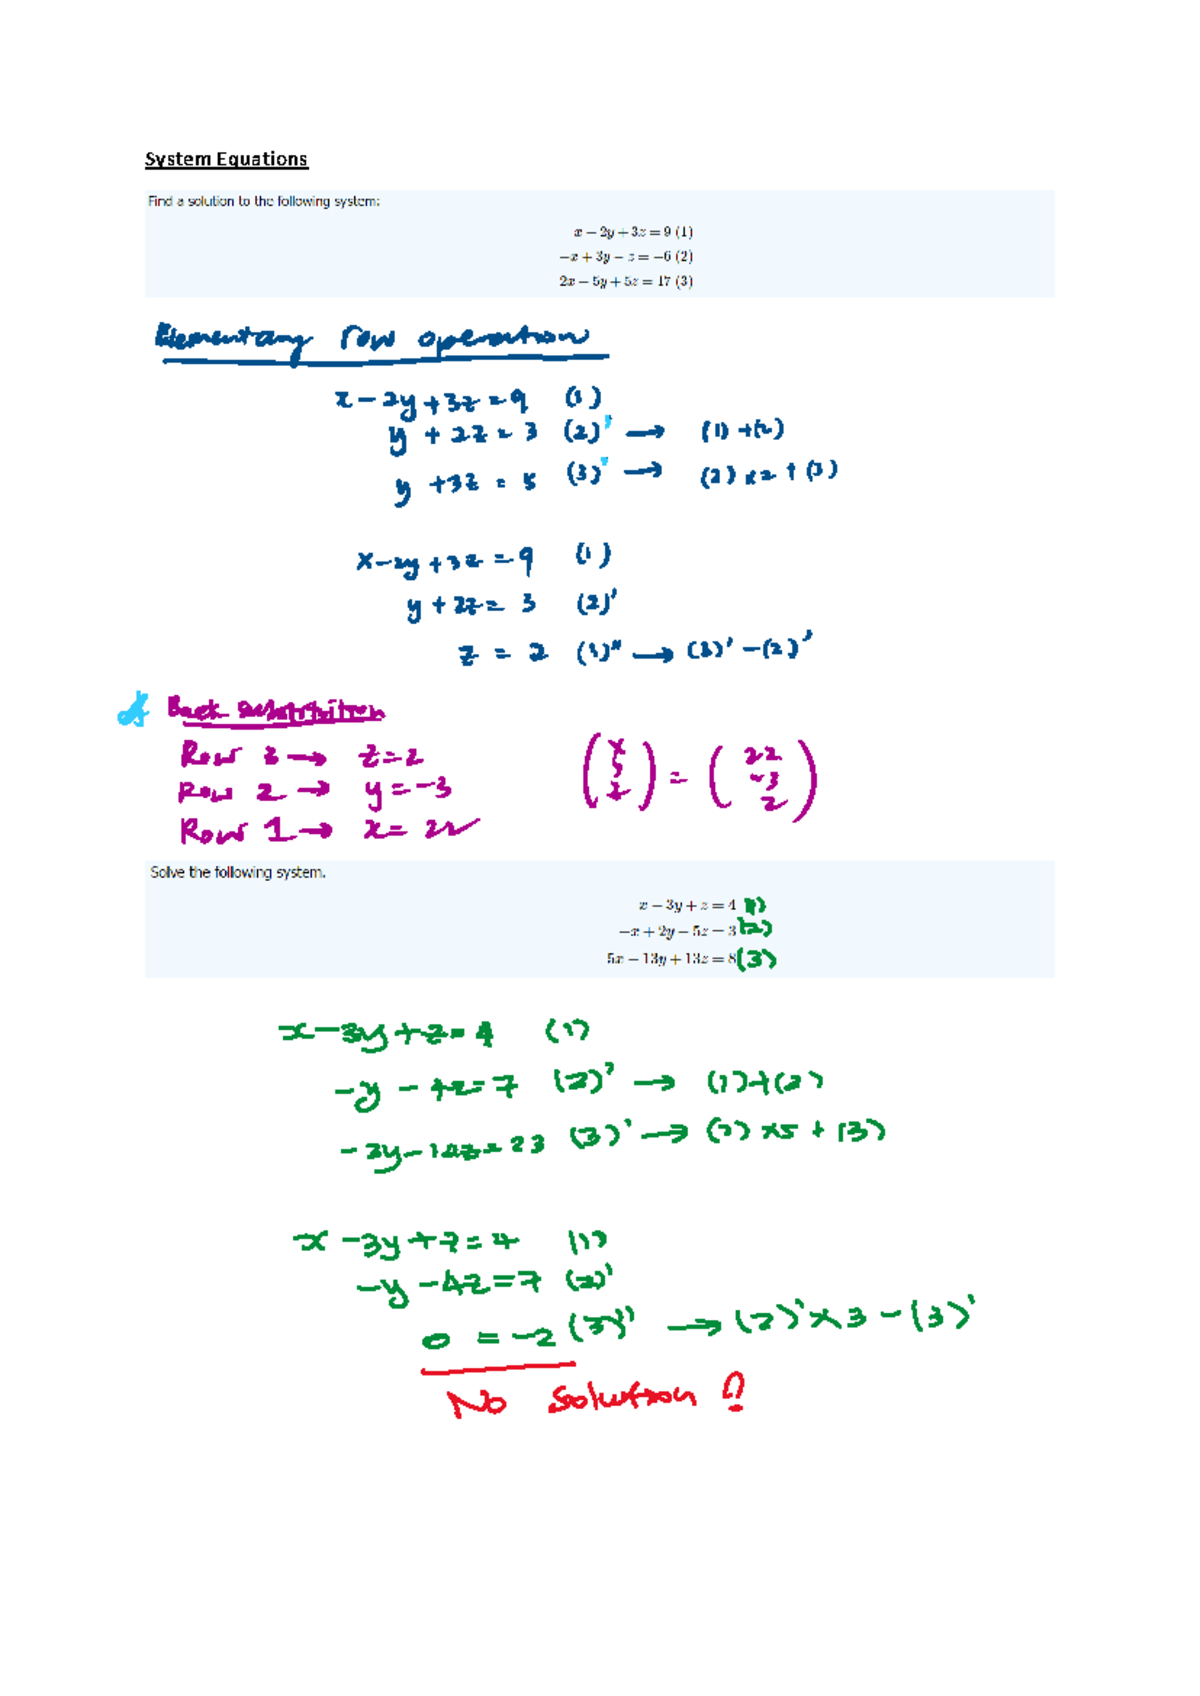 System Equations
Find a solution to the following system:
x − 2y + 3z = 9 (1)
−x + 3y − z = −6 (2)
2x − 5y + 5z = 17 (3)
Elementary row operation
x − 2y + 3z = 9 (1)
y + 2z = 3 (2)' → (1) + (2)
y + 3z = 5 (3)' → (2) x 2 + (3)
x − 2y + 3z = 9 (1)
y + 2z = 3 (2)'
z = 2 (3)'' → (3)' − (2)'
Back substitution
Row 3 → z = 2
Row 2 → y = −3
Row 1 → x = 22
(x y z) = (22 −3 2)
Solve the following system.
x − 3y + z = 4 (1)
−x + 2y − 5z = 3 (2)
5x − 13y + 13z = 8 (3)
x − 3y + z = 4 (1)
−y − 4z = 7 (2)' → (1) + (2)
−3y − 12z = 23 (3)' → (2) x5 + (3)
x − 3y + z = 4 (1)
−y − 4z = 7 (2)'
0 = −2 (3)'' → (2)' x 3 − (3)'
No solution !